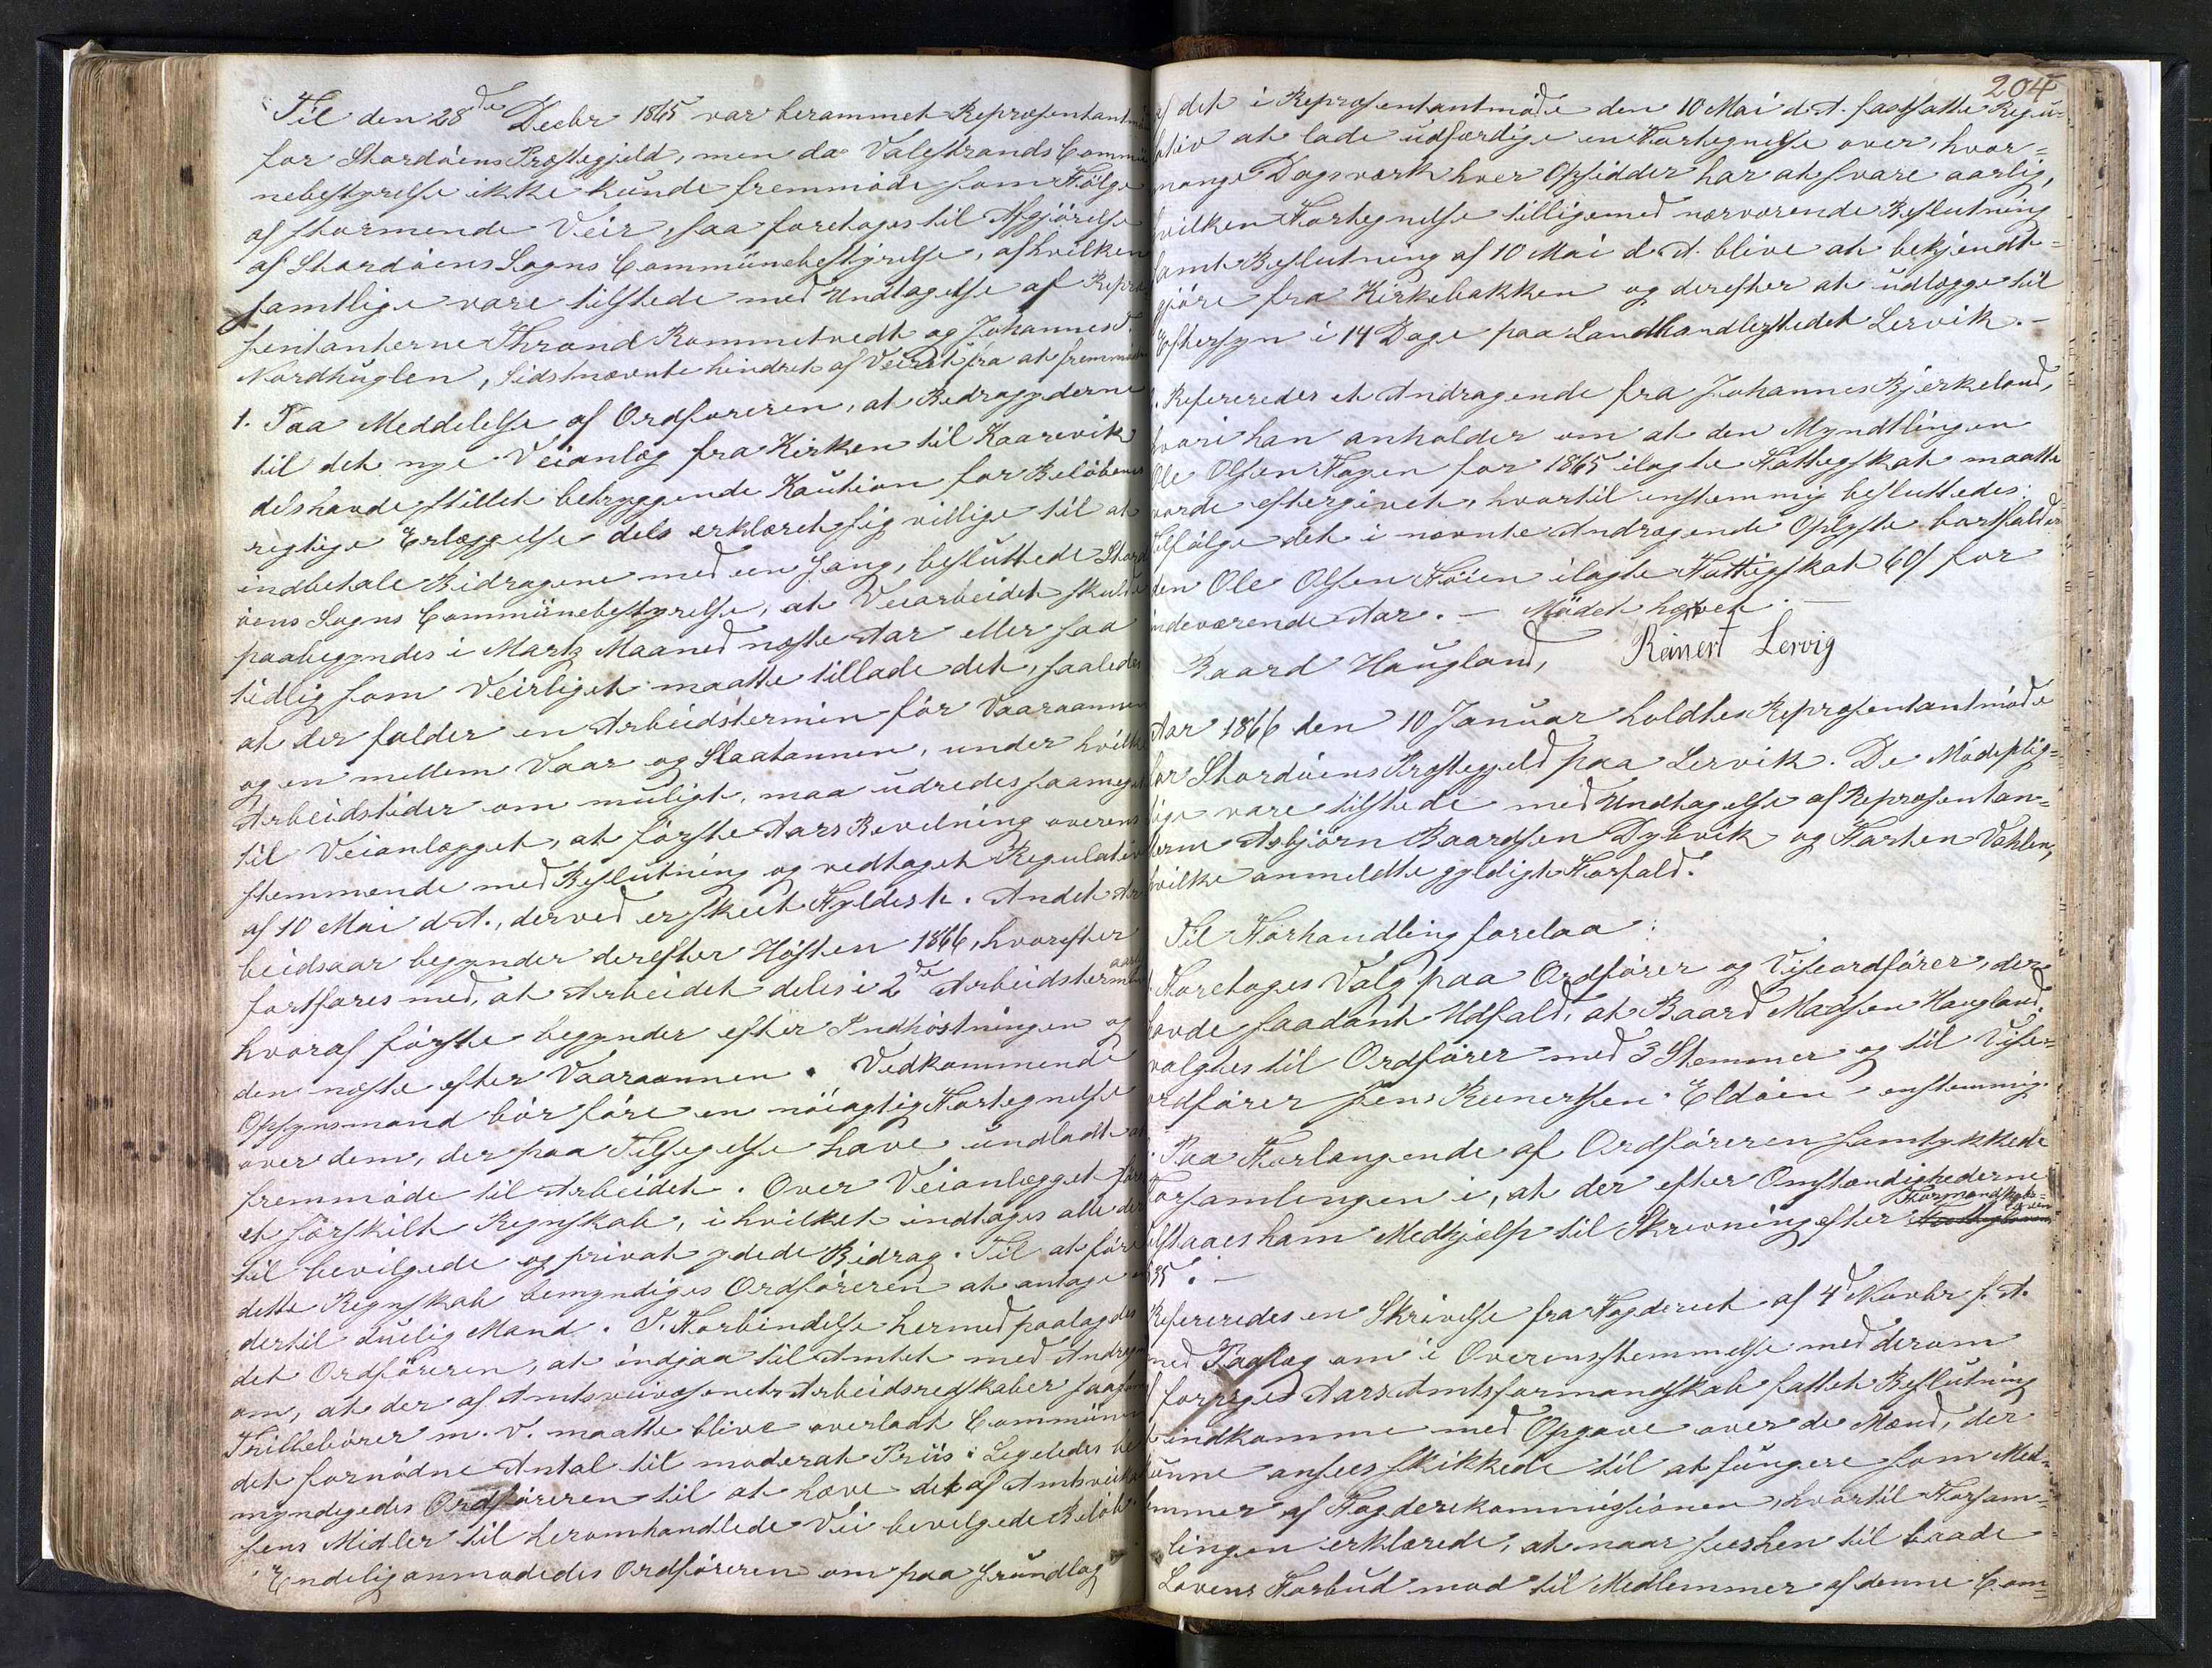 Til den 28de Decbr 1865 var berammet Repræsentantmö-
for Stordöens Præstegjeld, men da Valestrands Commü-
nebestyrelse ikke kunde fremmöde som Fölge
af stormende Veir, saa foretoges til Afgjörelse
af Stordöens Sogns Commünebestyrelse, af hvilken
samtlige vare tilstede med Undtagelse af Repræ-
sentanterne Thrond Rommetvedt og Johannes T.
Nordhuglen, Sidstnævnte hindret af Veiret fra at fremmöde
1. Paa Meddelelse af Ordföreren, at Bidragyderne
til det nye Veianlæg fra Kirken til Kaarevik
dels havde stillet betryggende Kaution for Belöbenes
regtige Erlæggelse dels erklæret sig villige til at
indbetale Bidragene med een Gang, besluttede Stord-
öens Sogns Commünebestyrelse, at Veiarbeidet skulde
paabegyndes i Martz Maaned næste Aar eller saa
tidlig som Veirliget maatte tillade det, saaledes
at der falder en Arbeidstermin för Vaaraannen
og en mellem Vaar og Slaatannen, under hvilke
Arbeidstider om muligt, maa udredes saameget
til Veianlægget, at förste Aars Bevilning overens-
stemmende med Beslutning og vedtaget Regulativ
af 10 Mai d. A., derved er skeet Fyldest. Andet Ar-
beidsaar begynder derefter Hösten 1866, hvorefter
fortfares med, at Arbeidet deles i 2de aarlige Arbeidstermin
hvoraf förste begynder efter Indhöstningen og
den næste efter Vaaraannen. Vedkommende
Opsynsmand bör före en nöiagtig Fortegnelse
over dem, der paa Tilsigelse have undladt at
fremmöde til Arbeidet. Over Veianlægget föres
et særskilt Regnskab, i hvilket indtages alle der
til bevilgede og privat ydede Bidrag. Til at före
dette Regnskab bemyndiges Ordföreren at antage en
dertil duelig Mand. I Forbindelse hermed paalagdes
det Ordföreren, at indgaa til Amtet med Andragen
om, at der af Amtsveivæsenets Arbeidsredskaber saasom
Trillebörer m. v. maatte blive overladt Commünen
det fornödne Antal til moderat Priis. Legeledes be-
myndigedes Ordföreren til at hæve det af Amtsveikas-
sens Midler til heromhandlede Vei bevilgede Belöb.
Endelig anmodedes Ordföreren om paa Grundlag
204
af det i Repræsentantmöde den 10 Mai d. A. fastsatte Regu-
lativ at lade udfærdige en Fortegnelse over hvor-
mange Dagsværk hver Opsidder har at svare aarlig,
hvilken Fortegnelse tilligemed nærværende Beslutning
samt Beslutning af 10 Mai d. A. blive at bekjendt-
gjöre fra Kirkebakken og derefter at udlægge til
Eftersyn i 14 Dage paa Landhandlerstedet Lervik. –
Refereredes et Andragende fra Johannes Bjerkeland,
hvori han anholder om at den Myndtlingen
Ole Olsen Hagen for 1865 ilagte Fattigskat maatte
vorde eftergivet, hvortil enstemmig besluttedes:
Ifölge det i nævnte Andragende Oplyste bortfalder
den Ole Olsen Höien ilagte Fattigskat 60 s for
indeværende Aar. – Mödet hævet. –
Baard Haugland, Reinert Lervig
Aar 1866 den 10 Januar holdtes Repræsentantmöde
for Stordöens Præstegjeld paa Lervik. De Mödeplig-
tige vare tilstede med Undtagelse af Repræsentan-
terne Asbjörn Baardsen Dybvik og Karsten Vahlen,
hvilke anmeldte gyldigt Forfald.
Til Forhandling forelaa:
Foretoges Valg paa Ordförer og Viseordförer, der
havde saadant Udfald, at Baard Madsen Haugland
valgtes til Ordförer med 3 Stemmer og til Vise-
ordförer Jens Reinertsen Eldöien enstemmig.
Paa Forlangende af Ordföreren samtykkede
Forsamlingen i, at der efter Omstændighederne
tilstaaes ham Medhjælp til Skrivning efter Formandskabs-
loven
§ 35. –
Refereredes en Skrivelse fra Fogderiet af 4de Novbr f. A.
med Paalæg om i Overensstemmelse med derom
af forriges Aars Amtsformandskab fattet Beslutning
indkomme med Opgave over de Mænd, der
kunne ansees skikkede til at fungere som Med-
lemmer af Fogderikommissionen, hvortil Forsam-
lingen erklærede, at naar sees hen til baade
Lovens Forbud mod til Medlemmer af denne Com-